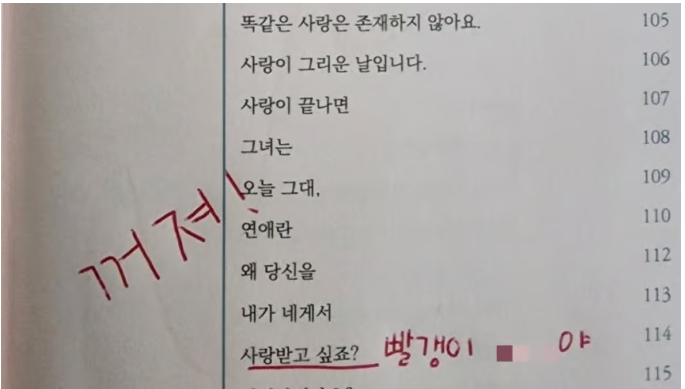 똑같은 사랑은 존재하지 않아요. 105
사랑이 그리운 날입니다. 106
사랑이 끝나면 107
그녀는 108
오늘 그대, 109
연애란 110
왜 당신을 112
내가 네게서 113
사랑받고 싶죠? 114
115
꺼져!
빨갱이 야